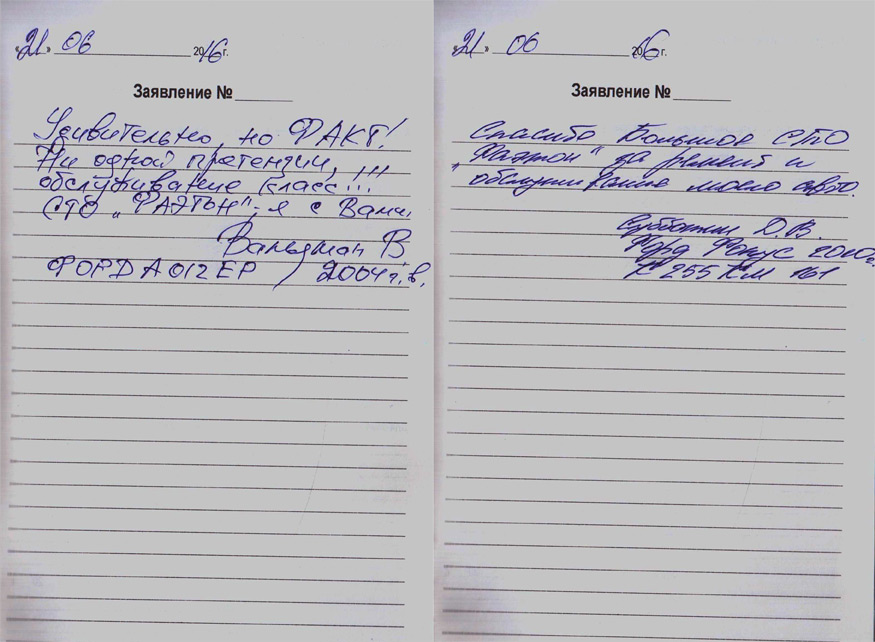 «21» 06 2016г.
Заявление №
Удивительно, но ФАКТ!
Ни одной претензии,
обслуживание класс!!!
СТО „ФАЭТОН", я с Вами.
Вальдман В
ФОРД А 012 ЕР / 2004 г.в.
«21» 06 2016г.
Заявление №
Спасибо Большое СТО
„Фаэтон" за ремонт и
обслуживание моего авто.
Субботин Д.В.
Форд Фокус 2010г.
К 255 КМ 161